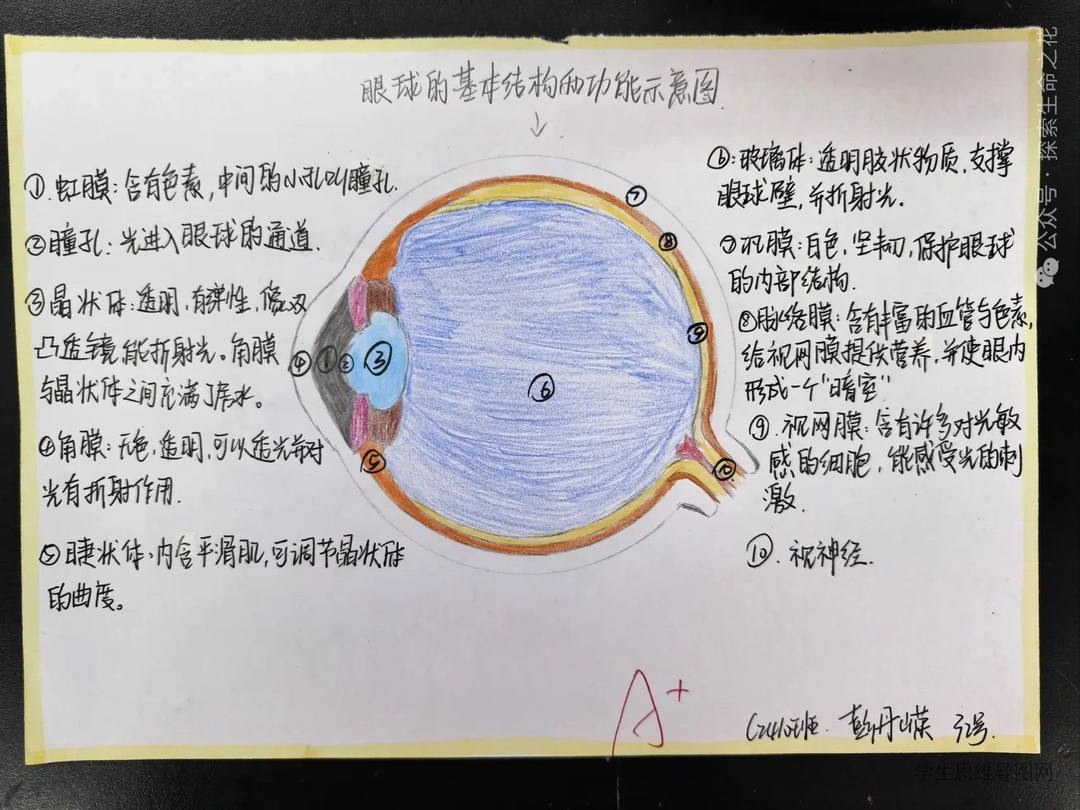 眼球的基本结构和功能示意图
↓
①虹膜:含有色素,中间的小孔叫瞳孔.
②瞳孔:光进入眼球的通道.
③晶状体:透明,有弹性,像双
凸透镜能折射光。角膜
与晶状体之间充满了房水。
④角膜:无色,透明,可以透光并对
光有折射作用.
⑤睫状体:内含平滑肌,可调节晶状体
的曲度。
⑥:玻璃体:透明胶状物质,支撑
眼球壁,并折射光.
⑦巩膜:白色,坚韧,保护眼球
的内部结构.
⑧脉络膜:含有丰富的血管与色素,
给视网膜提供营养,并使眼内
形成一个"暗室"
⑨.视网膜:含有许多对光敏
感的细胞,能感受光的刺
激.
⑩.视神经.
⑦
⑧
⑨
④ ① ② ③
⑥
⑤
⑩
A+
C2410班 彭丹 32号.
公众号·探索生命之花
学生思维导图网